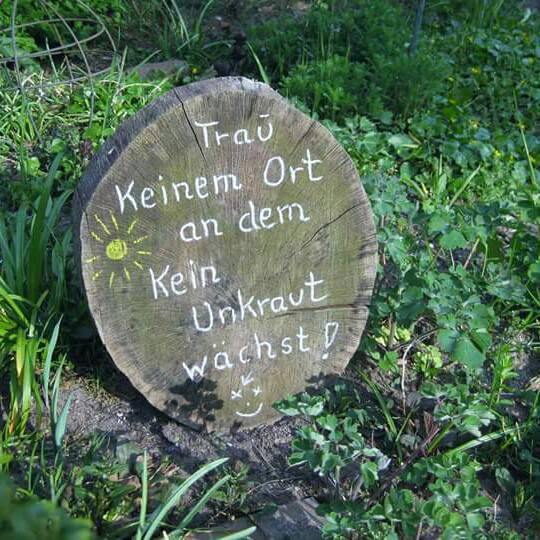 Traŭ
Keinem Ort
an dem
Kein
Unkraut
wächst!